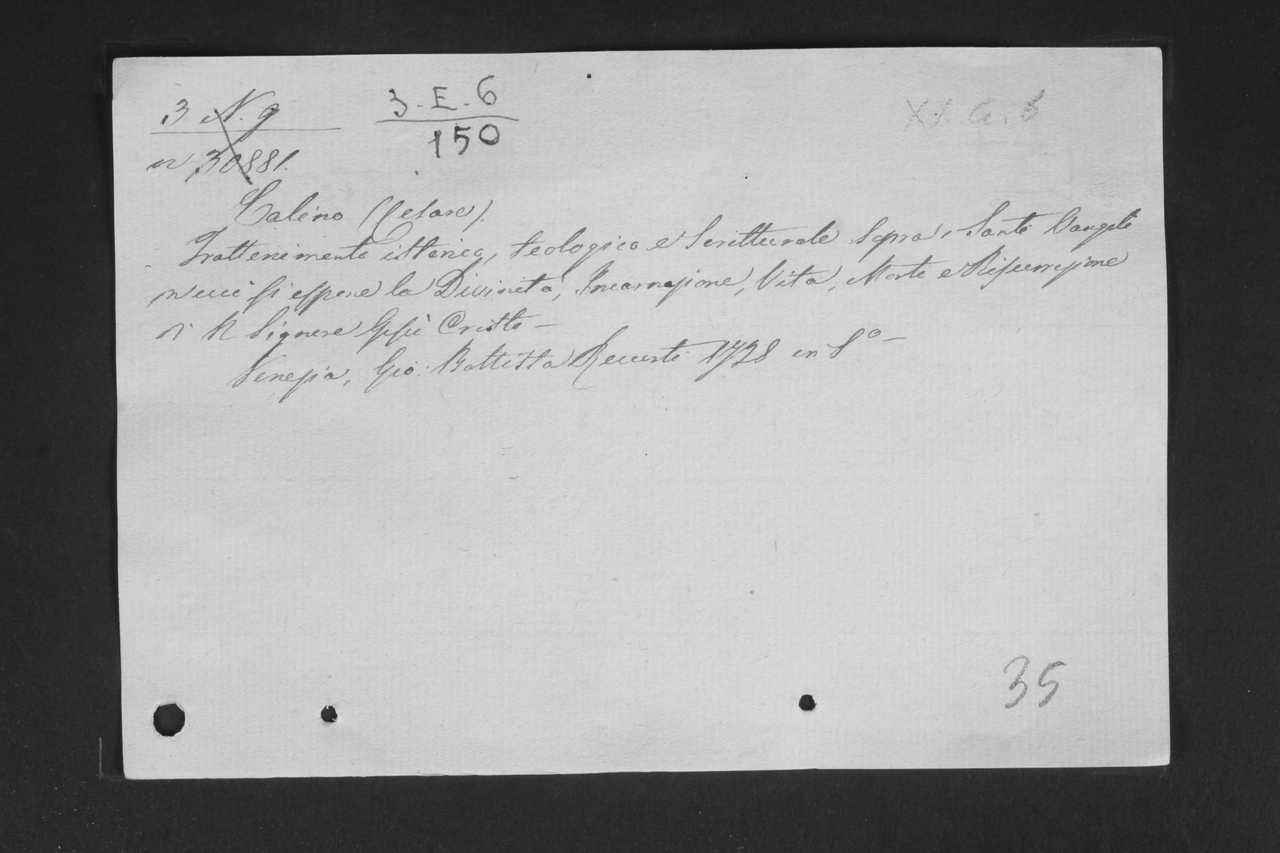 3 N. 9
3-E-6
150
n 30881.
Calino (Cesare)
Trattenimento istorico, teologico e Scritturale sopra i Santi Vangeli
n cui si espone la Divinità, Incarnazione, Vita, Morte e Risurrezione
di N Signore Gesù Cristo –
Venezia, Gio: Battista Recurti 1728 in 8º –
35